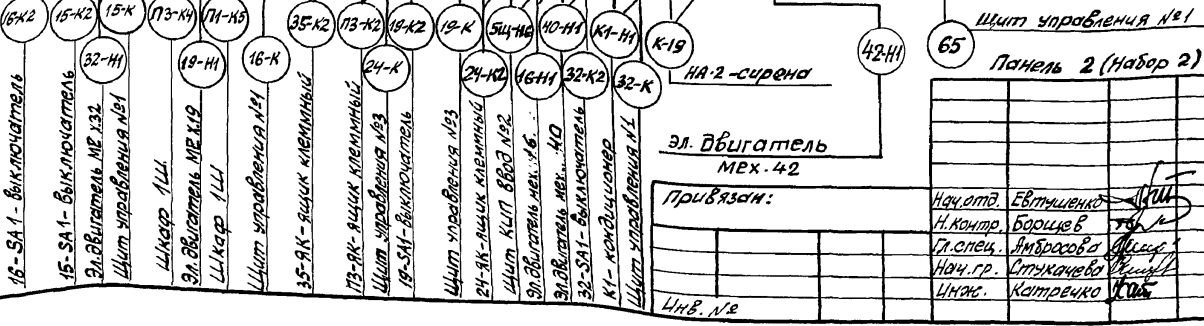 16-К2
15-К2
15-К
П3-К4
П1-К5
35-К2
П3-К2
19-К2
19-К
5Щ-Н6
40-Н1
К1-Н1
К-19
42-Н1
65
32-Н1
19-Н1
16-К
24-К
24-К2
16-Н1
32-К2
32-К
Щит управления №1
Панель 2 (Набор 2)
НА-2-сирена
эл. двигатель
мех. 42
16-SA1- выключатель
15-SA1- выключатель
Эл.двигатель мех.32
Щит управления №1
Шкаф 1Ш
Эл.двигатель мех.19
Шкаф 1Ш
Щит управления №1
35-ЯК- ящик клеммный
П3-ЯК- ящик клеммный
Щит управления №3
19-SA1-выключатель
Щит управления №3
24-ЯК-ящик клемный
Щит КИП Ввод №2
Эл.двигатель мех. 16
Эл.двигатель мех. 40
32-SA1-выключатель
К1- кондиционер
Щит управления №1
Привязан:
Инв. №
Нач.отд. Евтушенко
Н.контр. Борщев
Гл.спец. Амбросова
Нач.гр. Стукачева
Инж. Катречко